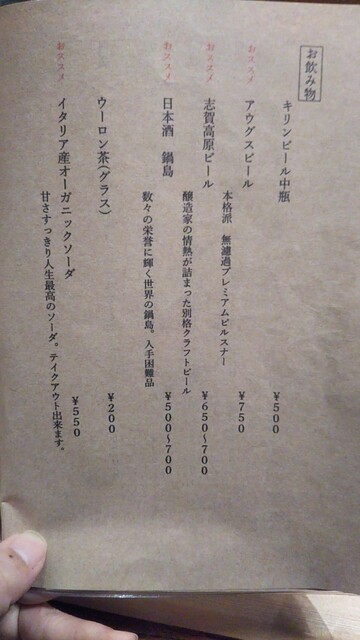 お飲み物
キリンビール中瓶
¥500
おススメ
アウグスビール
¥750
本格派 無濾過プレミアムピルスナー
おススメ
志賀高原ビール
¥650〜700
醸造家の情熱が詰まった別格クラフトビール
おススメ
日本酒 鍋島
¥500〜700
数々の栄誉に輝く世界の鍋島。入手困難品
ウーロン茶(グラス)
¥200
おススメ
イタリア産オーガニックソーダ
¥550
甘さすっきり人生最高のソーダ。テイクアウト出来ます。